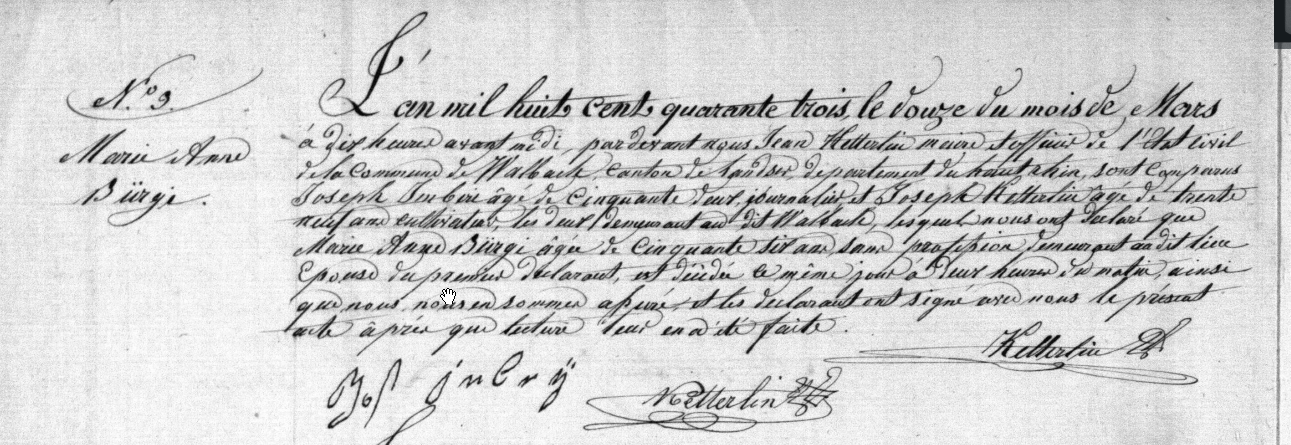 N.º 9.
Marie Anne
Bürgi.
L'an mil huit cent quarante trois, le douze du mois de Mars
à dix heures avant midi, pardevant nous Jean Ketterlin maire et officier de l'Etat civil
de la Commune de Walbach, Canton de Landser, département du haut rhin, sont comparus
Joseph âgé de cinquante deux, journalier et Joseph Ketterlin âgé de trente
neuf ans cultivateur, les deux demeurant au dit Walbach, lesquels nous ont declaré que
Marie Anne Bürgi âgée de cinquante six ans, sans profession demeurant au dit lieu
Epouse du premier declarant, est décédée ce même jour à deux heures du matin, ainsi
que nous nous en sommes assuré, et les declarant ont signé avec nous le présent
acte âprès que lecture leur en a été faite.
Ketterlin
Ketterlin